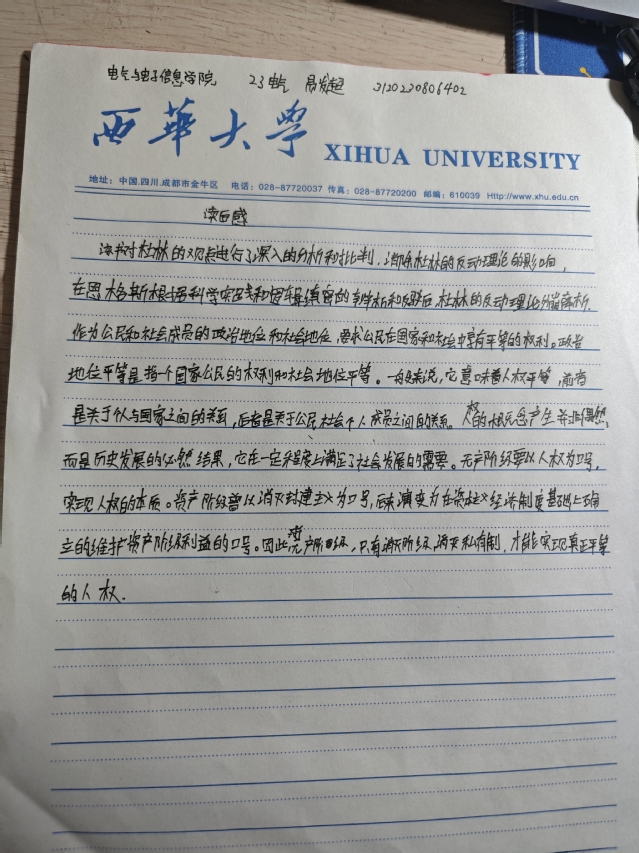 电气与电子信息学院 23电气 易发超 3120230806402
西華大学 XIHUA UNIVERSITY
地址：中国.四川.成都市金牛区 电话：028-87720037 传真：028-87720200 邮编：610039 Http://www.xhu.edu.cn
读后感
该书对杜林的观点进行了深入的分析和批判，消除杜林的反动理论的影响，
在恩格斯根据科学实践和逻辑缜密的剖析和反驳后，杜林的反动理论分崩离析。
作为公民和社会成员的政治地位和社会地位，要求公民在国家和社会中享有平等的权利。政治
地位平等是指一个国家公民的权利和社会地位平等。一般来说，它意味着人权平等，前者
是关于个人与国家之间的关系，后者是关于公民社会个人成员之间的关系。人权的概念产生并非偶然，
而是历史发展的必然结果，它在一定程度上满足了社会发展的需要。无产阶级要以人权为口号，
实现人权的本质。资产阶级曾以消灭封建主义为口号，后来演变为在资本主义经济制度基础上确
立的维护资产阶级利益的口号。因此对无产阶级，只有消灭阶级，消灭私有制，才能实现真正平等
的人权．